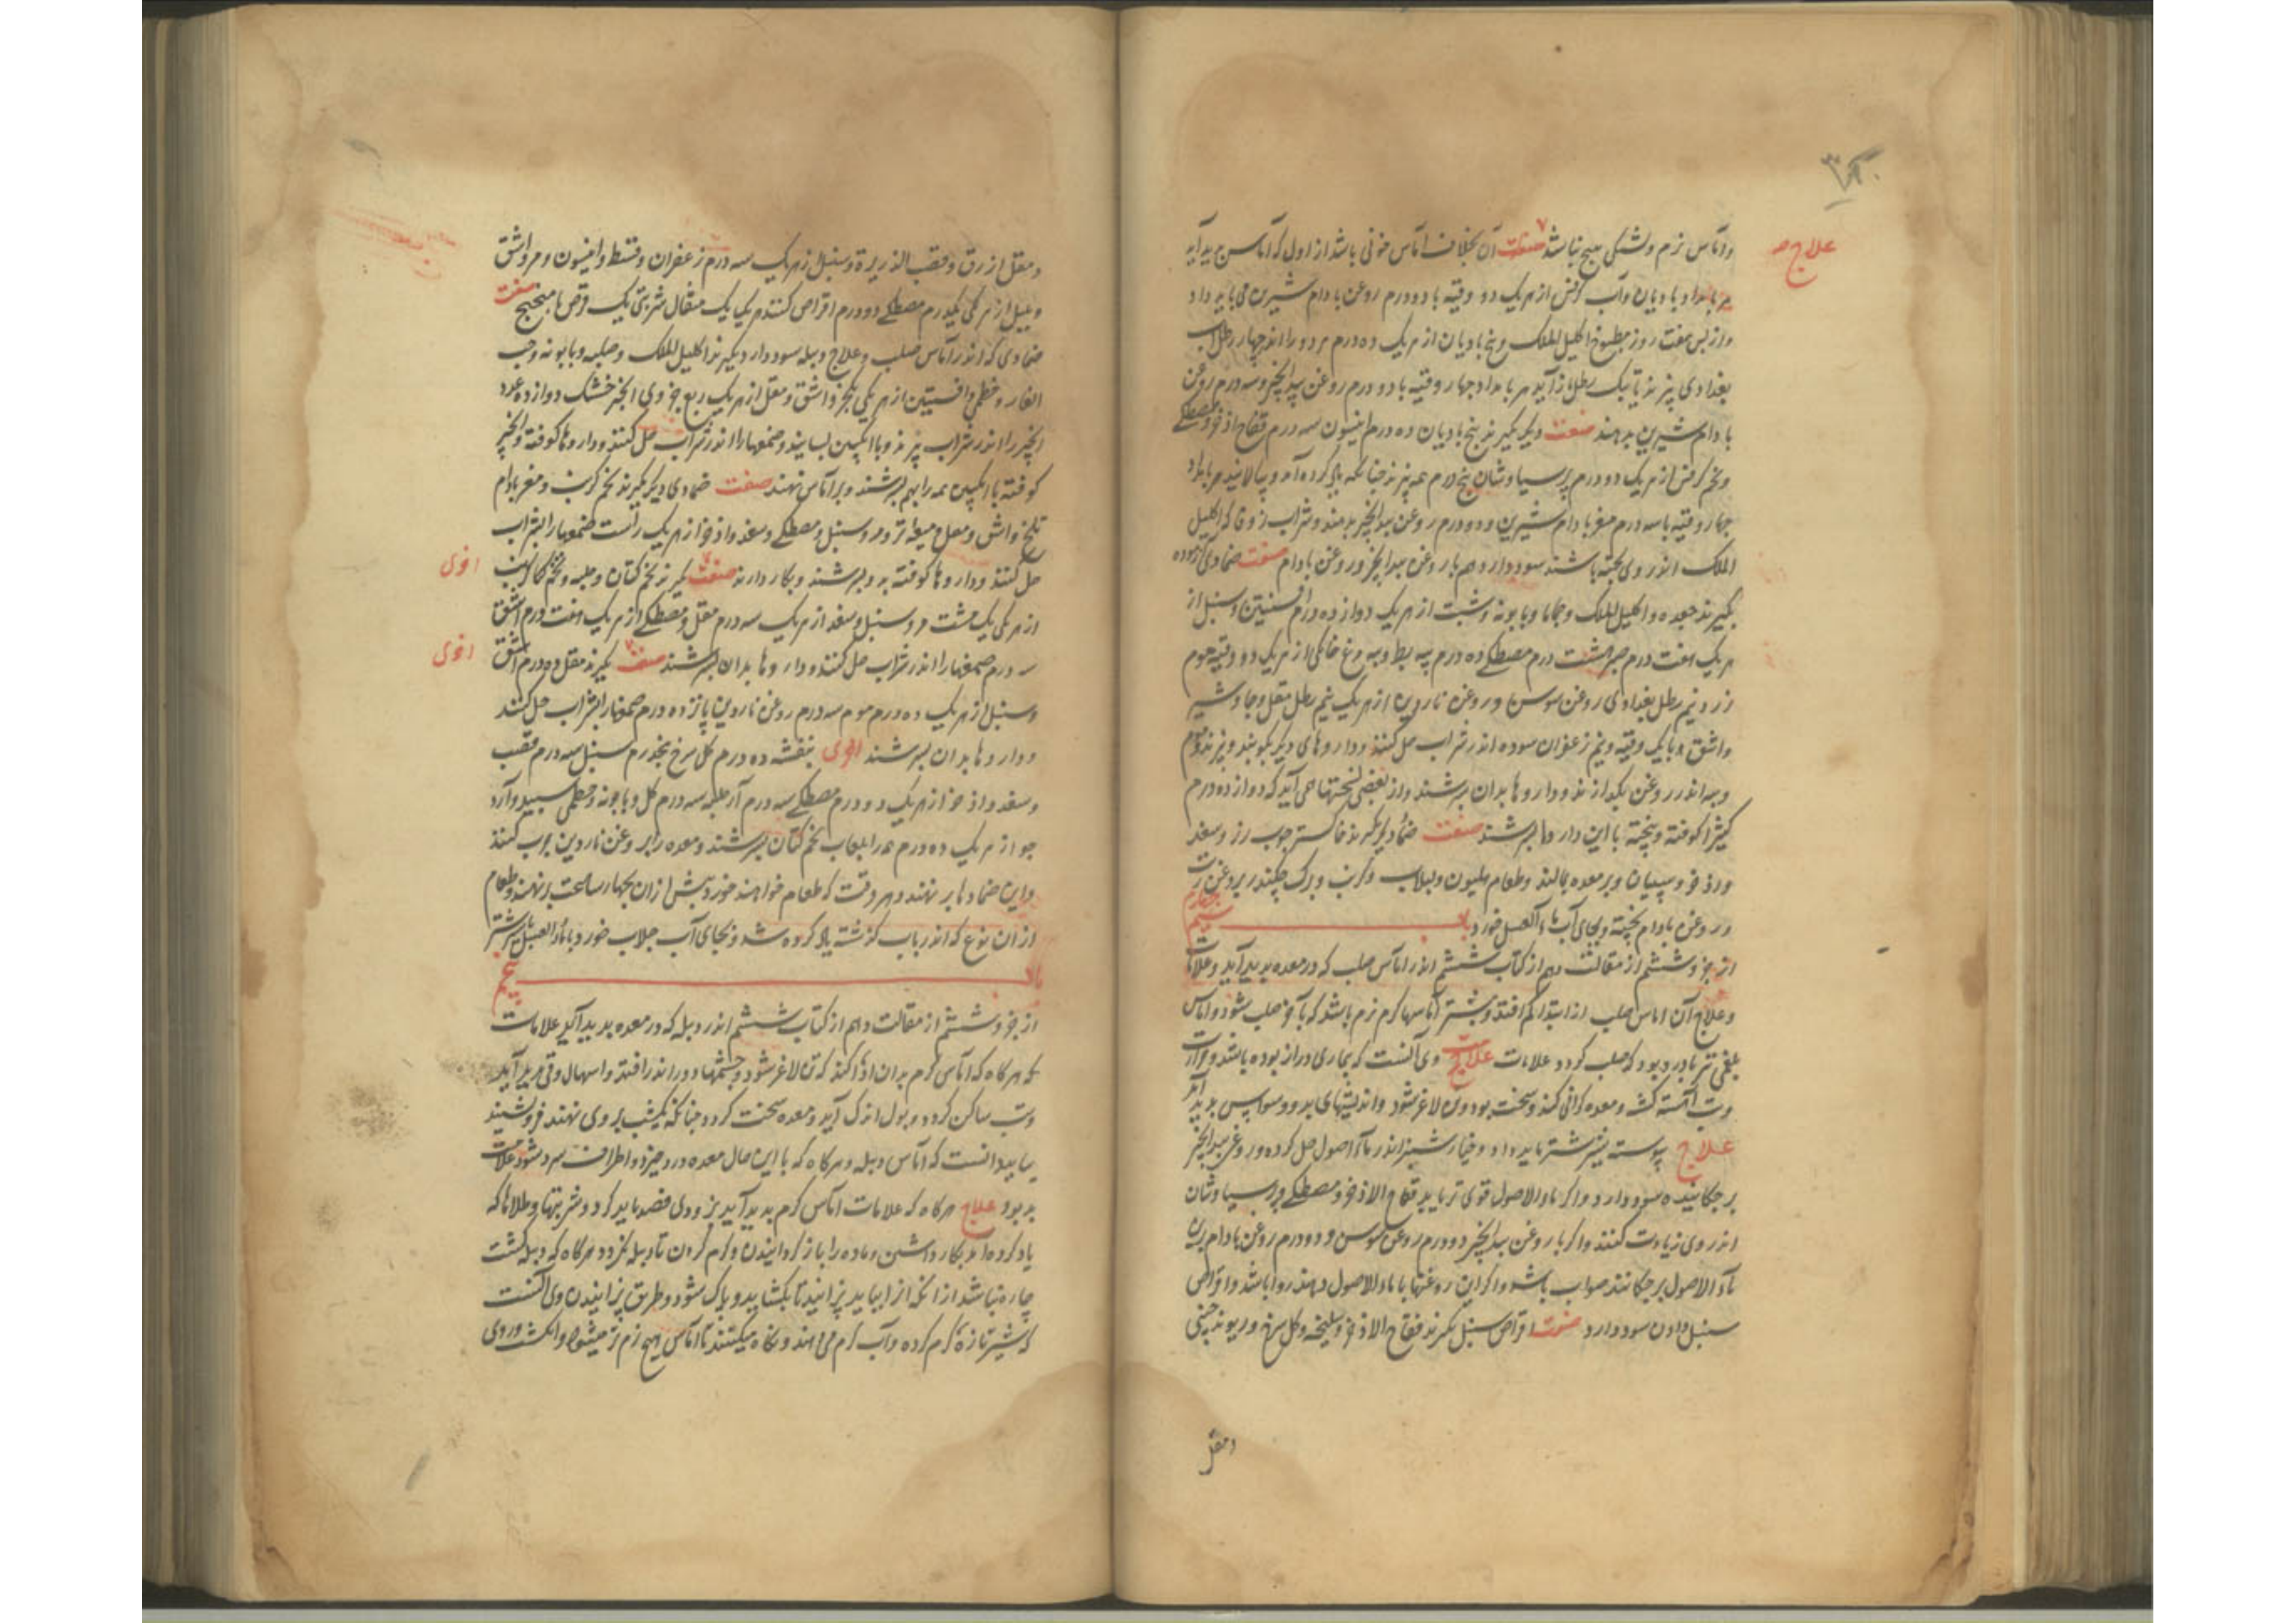 علاج
وآماس نرم وتشنگی هیچ نباشد صفت آن بخلاف آماس خونی باشد از اول که آماس پدید آید
هر بامداد بادیان وآب کرفس از هر یک دو وقیه با دو درم روغن بادام شیرین می باید داد
واز پس هفت روز مطبوخ اکلیل الملک وبیخ بادیان از هر یک ده درم هر دو را اندر چهار رطل آب
بغدادی پزند تا یک رطل باز آید هر بامداد چهار وقیه با دو درم روغن بید انجیر وسه درم روغن
بادام شیرین بدهند صفت دیگر بگیرند بیخ بادیان ده درم انیسون سه درم فقاح اذخر ومصطکی
وتخم کرفس از هر یک دو درم پرسیاوشان پنج درم همه پزند چنانکه یاد کرده آمد وبپالایند هر بامداد
چهار وقیه با سه درم مغز بادام شیرین ودو درم روغن بید انجیر بدهند وشراب زوفا که اکلیل
الملک اندر وی پخته باشند سود دارد هم با روغن بید انجیر وروغن بادام صفت ضمادی آزموده
بگیرند جعده واکلیل الملک وحماما وبابونه وشبت از هر یک دوازده درم افسنتین وسنبل از
هر یک هفت درم صبر هشت درم مصطکی ده درم پیه بط وپیه مرغ خانگی از هر یک دو وقیه موم
زرد نیم رطل بغدادی روغن سوسن وروغن ناردین از هر یک نیم رطل مقل وجاوشیر
واشق ویک وقیه ونیم زعفران سوده اندر شراب حل کنند وداروهای دیگر بکوبند وبپزند وموم
وپیه اندر روغن بگدازند وداروها بدان بسرشند واز بعضی نسختها می آید که دوازده درم
کثیرا کوفته وبیخته با این داروها بسرشند صفت ضماد دیگر بگیرند خاکستر چوب رز وسعد
واذخر وسپستان وبر معده بمالند وطعام هلیون ولبلاب وکرنب وبرگ چکندر بروغن زیت
وروغن بادام پخته وبجای آب ماء العسل خورد باب چهارم
از جزو ششم از مقالت دهم از کتاب ششم اندر اماس صلب که در معده پدید آید وعلامات
وعلاج آن اماس صلب از ابتدا کم افتد وبیشتر آماسها گرم نرم باشد که بآخر صلب شود واماس
بلغمی نیز نادر بود که صلب گردد علامات وی آنست که بیماری دراز بوده باشد وحرارت
وتب آهسته گشته ومعده گرانی کند وسخت بود وتن لاغر شود واندیشهای بد ووسواس پدید آید
علاج پیوسته شیر شتر باید داد وخیار شنبر اندر ماء اصول حل کرده وروغن بید انجیر
بر چکانیده سود دارد واگر ماء الاصول قوی تر باید فقاح الاذخر ومصطکی وپرسیاوشان
اندر وی زیادت کنند واگر با روغن بید انجیر دو درم روغن سوسن ودو درم روغن بادام بر
ماء الاصول بر چکانند صواب باشد واگر این روغنها با ماء الاصول دهند روا باشد واقراص
سنبل دادن سود دارد صفت اقراص سنبل بگیرند فقاح الاذخر وسلیخه وگل سرخ وریوند چینی
ومقل
ومقل ازرق وقصب الذریرة وسنبل از هر یک سه درم زعفران وقسط وانیسون ومر واشق
وپلپل از هر یکی یکدرم مصطکی دو درم اقراص کنند هر یکی یک مثقال شربتی یک قرص با میبختج صفت
ضمادی که اندر آماس صلب وعلاج دبیله سود دارد بگیرند اکلیل الملک وحلبه وبابونه وحب
الغار وخطمی وافسنتین از هر یکی یکجزو اشق ومقل از هر یک ربع جزوی انجیر خشک دوازده عدد
انجیر را اندر شراب پزند وبا انگبین بسایند وصمغها را اندر شراب حل کنند وداروها کوفته وانجیر
کوفته با انگبین همه را بهم بسرشند وبر آماس نهند صفت ضمادی دیگر بگیرند تخم کرنب ومغز بادام
تلخ واشق ومقل ومیعه تر ومر وسنبل ومصطکی وسعد واذخر از هر یک راست صمغها را بشراب
حل کنند وداروها کوفته بدو بسرشند وبکار دارند صفت بگیرند تخم کتان وحلبه وتخم کرنب
اخری
از هر یکی یک مشت ومر وسنبل وسعد از هر یک سه درم مقل ومصطکی از هر یک هفت درم اشق
سه درم صمغها را اندر شراب حل کنند وداروها بدان بسرشند صفت بگیرند مقل ده درم اشق
اخری
وسنبل از هر یک ده درم موم سه درم روغن ناردین پانزده درم صمغها را بشراب حل کنند
وداروها بدان بسرشند اخری بنفشه ده درم گل سرخ پنجدرم سنبل سه درم قصب
وسعد واذخر از هر یک دو درم مصطکی سه درم آرد حلبه سه درم گل وبابونه وخطمی سپید وآرد
جو از هر یک ده درم همه را بلعاب تخم کتان بسرشند ومعده را بروغن ناردین چرب کنند
واین ضمادها بر نهند وهر وقت که طعام خواهند خورد پیش از آن بچهار ساعت بر نهند وطعام
از آن نوع که اندر باب گذشته یاد کرده شد وبجای آب جلاب خورد یا ماء العسل بیشتر
باب پنجم
از جزو ششم از مقالت دهم از کتاب ششم اندر دبیله که در معده پدید آید علامات
که هر گاه که آماس گرم بدان ادا کند که تن لاغر شود وچشمها دور اندر افتد واسهال وقی پدید آید
وتب ساکن گردد وبول اندک آید ومعده سخت گردد چنانکه انگشت بر وی نهند فرو نشیند
بباید دانست که آماس دبیله وهر گاه که با این حال معده درد خیزد واطراف سرد شود علامت
بد بود علاج هر گاه که علامات آماس گرم پدید آید بزودی فصد باید کرد وشربتها وطلاها که
یاد کرده آمد بکار داشتن وماده را باز گردانیدن وگرم کردن تا دبیله نگردد وهر گاه که دبیله گشت
چاره نباشد از آنکه آنرا بباید پزانید تا بکشاید وپاک شود وطریق پزانیدن وی آنست
که شیر تازه گرم کرده وآب گرم می دهند ونگاه میکنند تا آماس هیچ نرم تر میشود وانگشت در وی